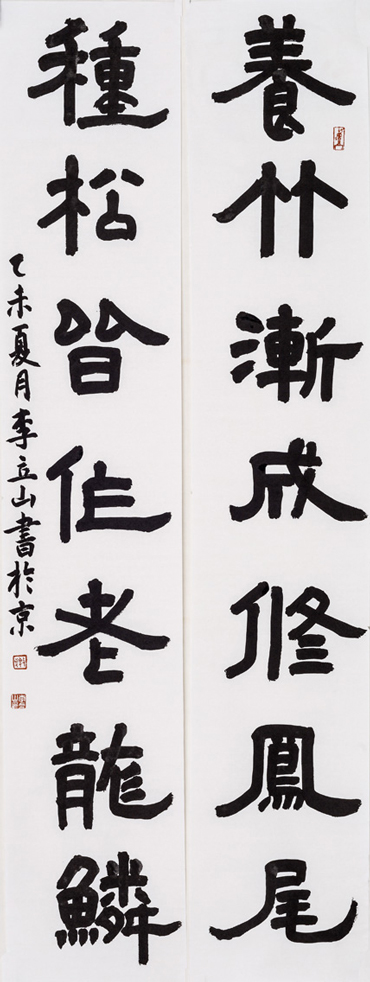 養竹漸成修鳳尾
種松皆作老龍鱗
乙未夏月李立山書於京